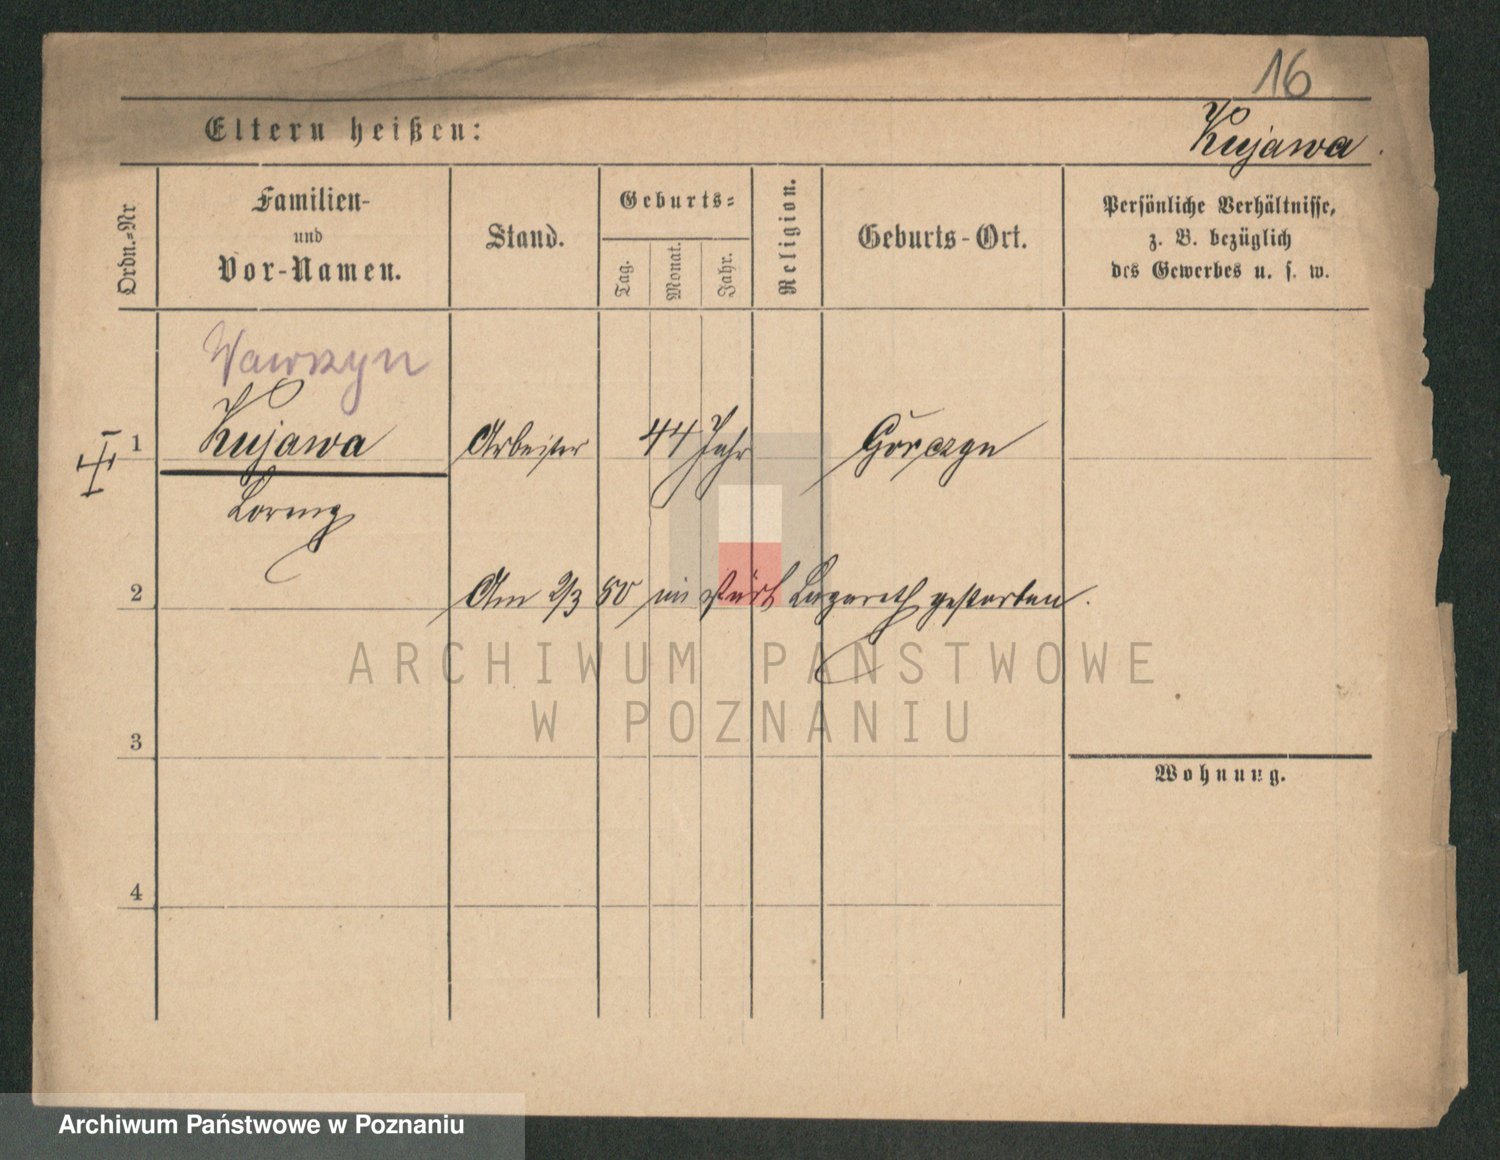 16
Eltern heißen:
Kujawa.
Ordn.=Nr
Familien-
und
Vor-Namen.
Stand.
Geburts=
Tag.
Monat.
Jahr.
Religion.
Geburts-Ort.
Persönliche Verhältnisse,
z. B. bezüglich
des Gewerbes u. s. w.
Wawrzyn
1 Kujawa Arbeiter 44 Jahr Górczyn
Lorenz
2 Am 2/3 50 im städt Lazareth gestorben.
ARCHIWUM PAŃSTWOWE
W POZNANIU
3
Wohnung.
4
Archiwum Państwowe w Poznaniu